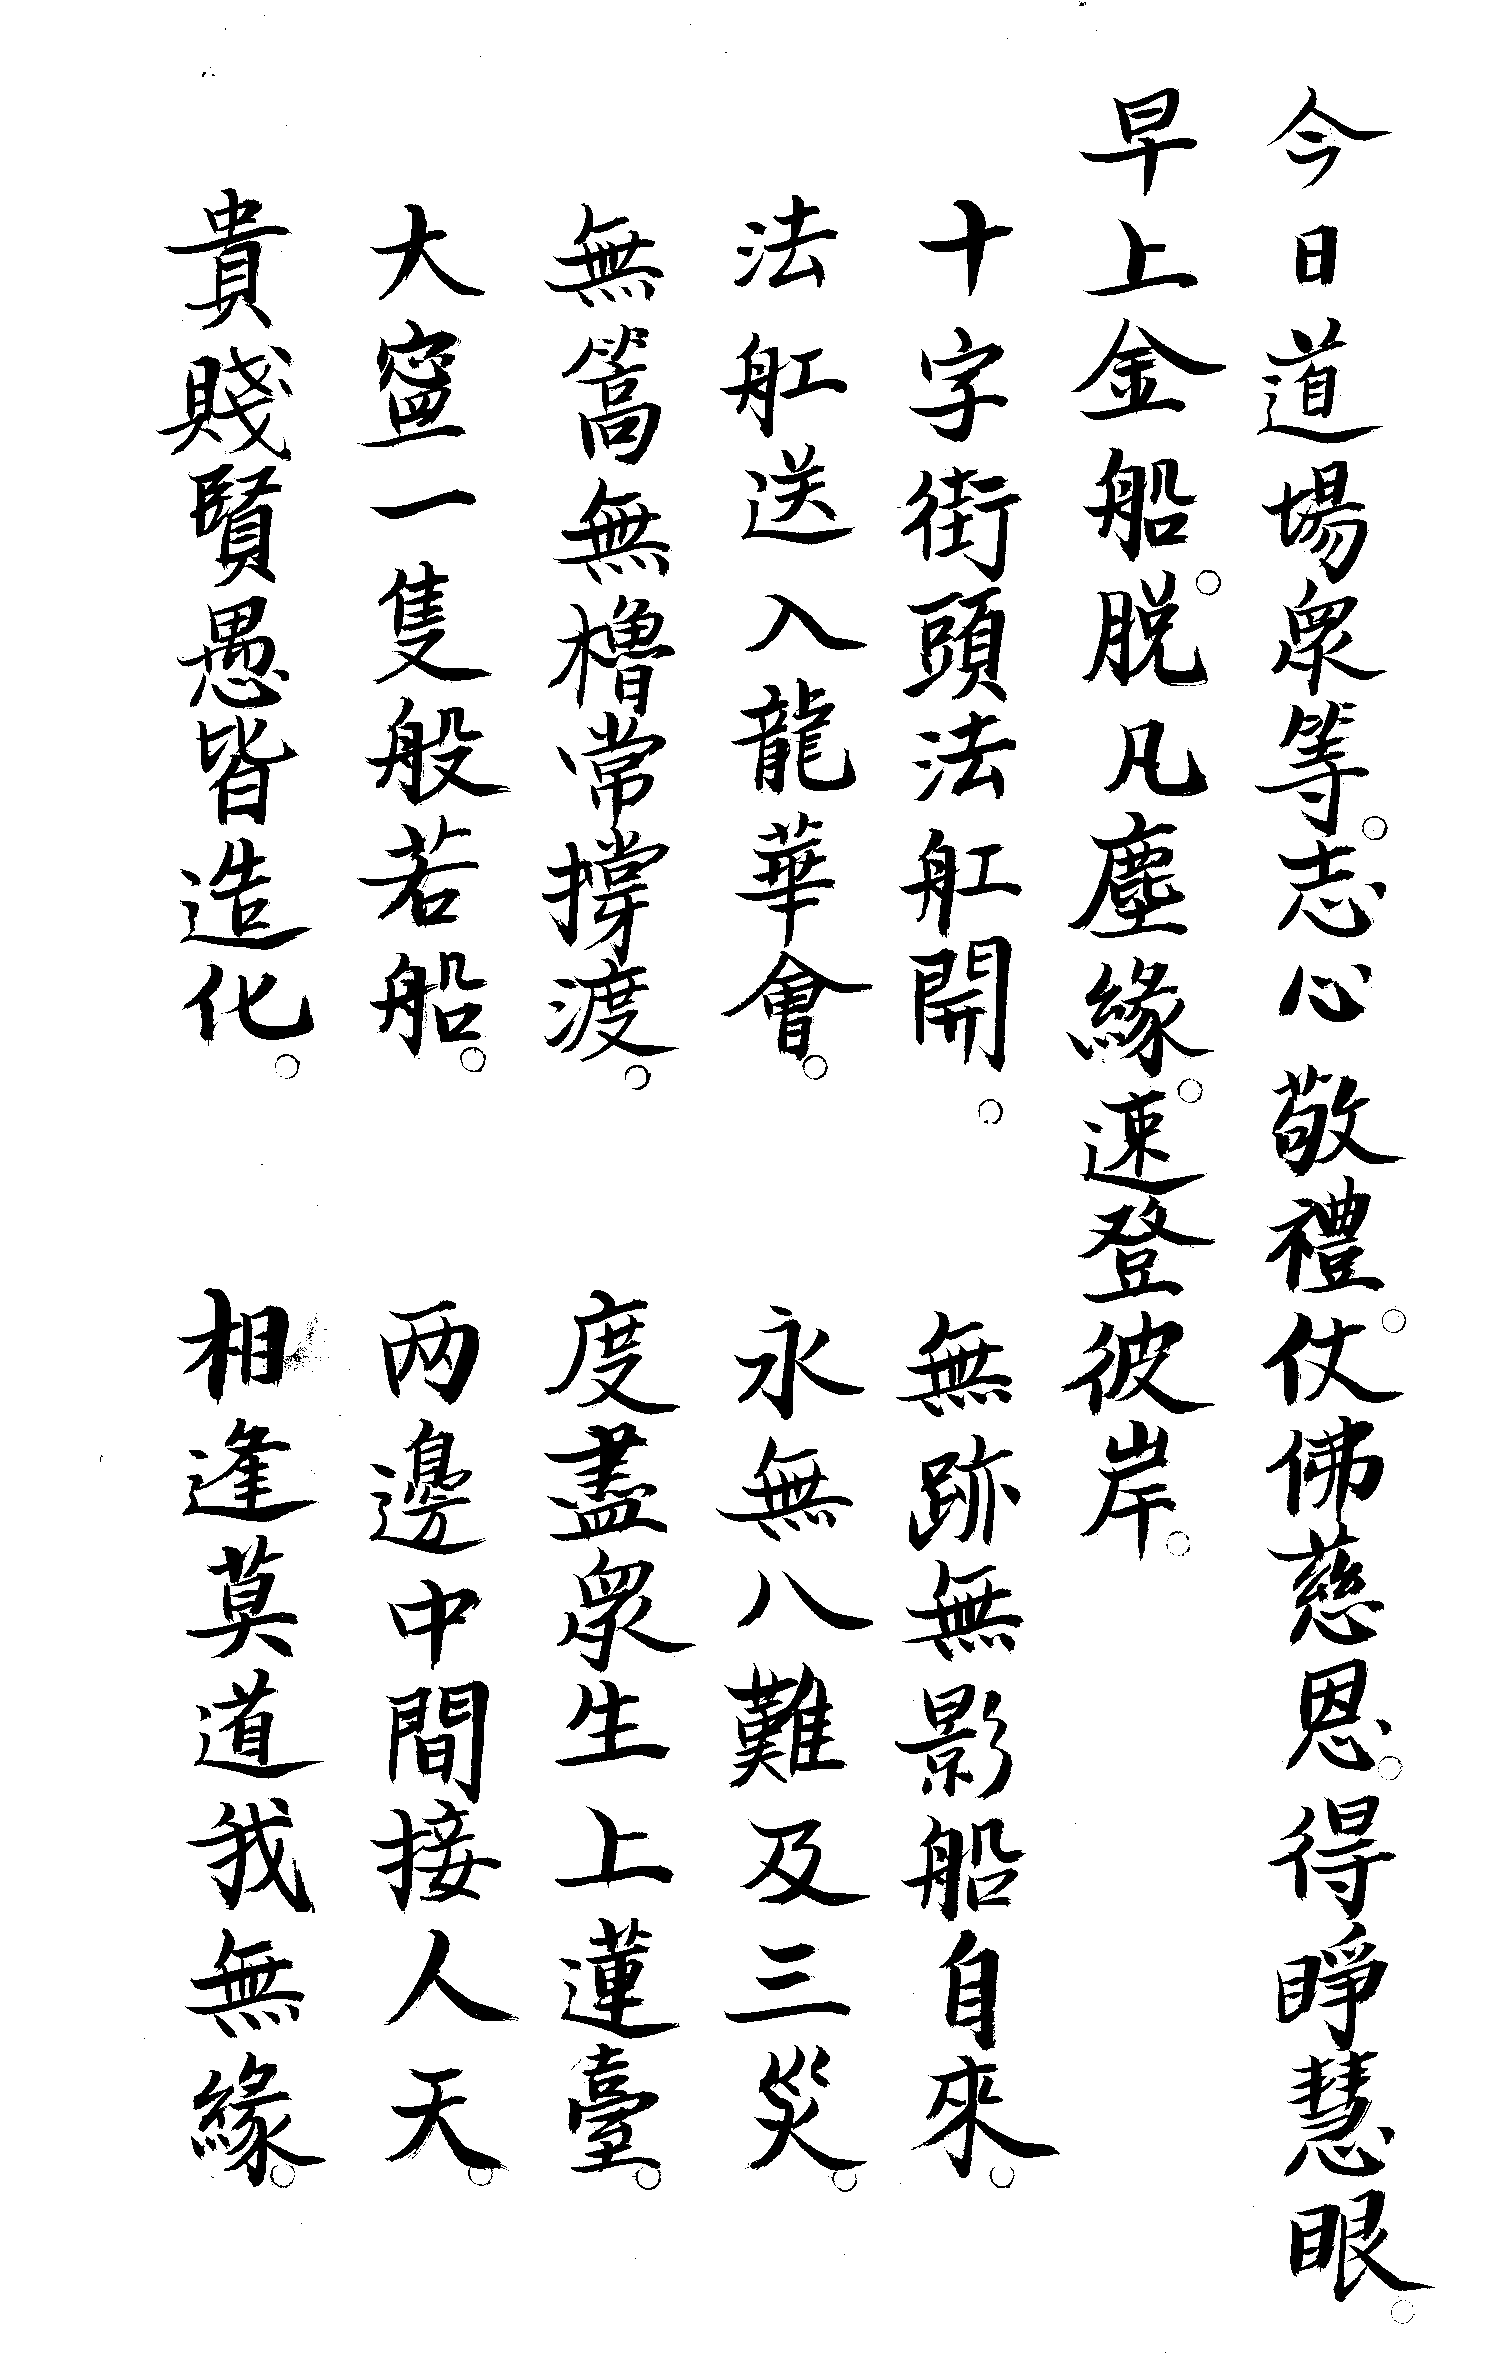 今日道場衆等。志心敬禮。仗佛慈恩。得睜慧眼。
早上金船。脱凡塵緣。速登彼岸。
十字街頭法舡開。 無跡無影船自來。
法舡送入龍華會。 永無八難及三災。
無篙無櫓常撐渡。 度盡衆生上蓮臺。
大寍一隻般若船。 两邊中間接人天。
貴賤賢愚皆造化。 相逢莫道我無緣。